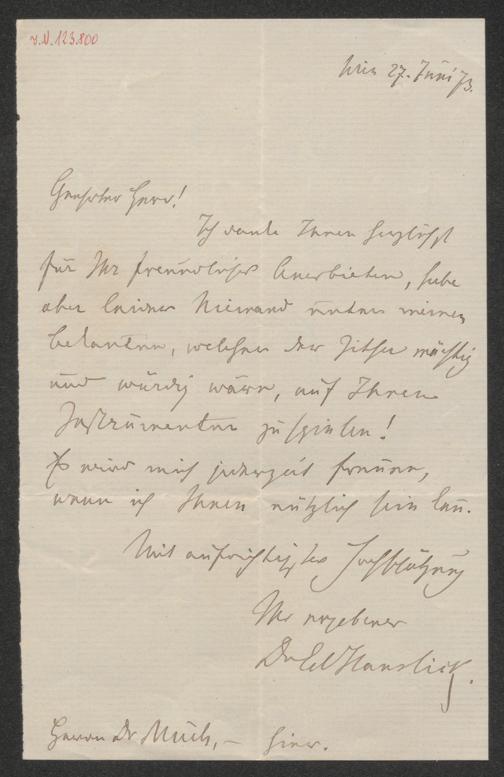 J.N. 123.800
Wien 27. Juni 73.
Geehrter Herr!
Ich danke Ihnen herzlichst
für Ihr freundliches Anerbieten, habe
aber leider Niemand unter meinen
Bekannten, welcher der Zither mächtig
und würdig wäre, auf Ihren
Instrumenten zu spielen!
Es wird mich jederzeit freuen,
wenn ich Ihnen nützlich sein kann.
Mit aufrichtigster Hochschätzung
Ihr ergebener
Dr Ed Hanslick.
Herrn Dr Much, – hier.